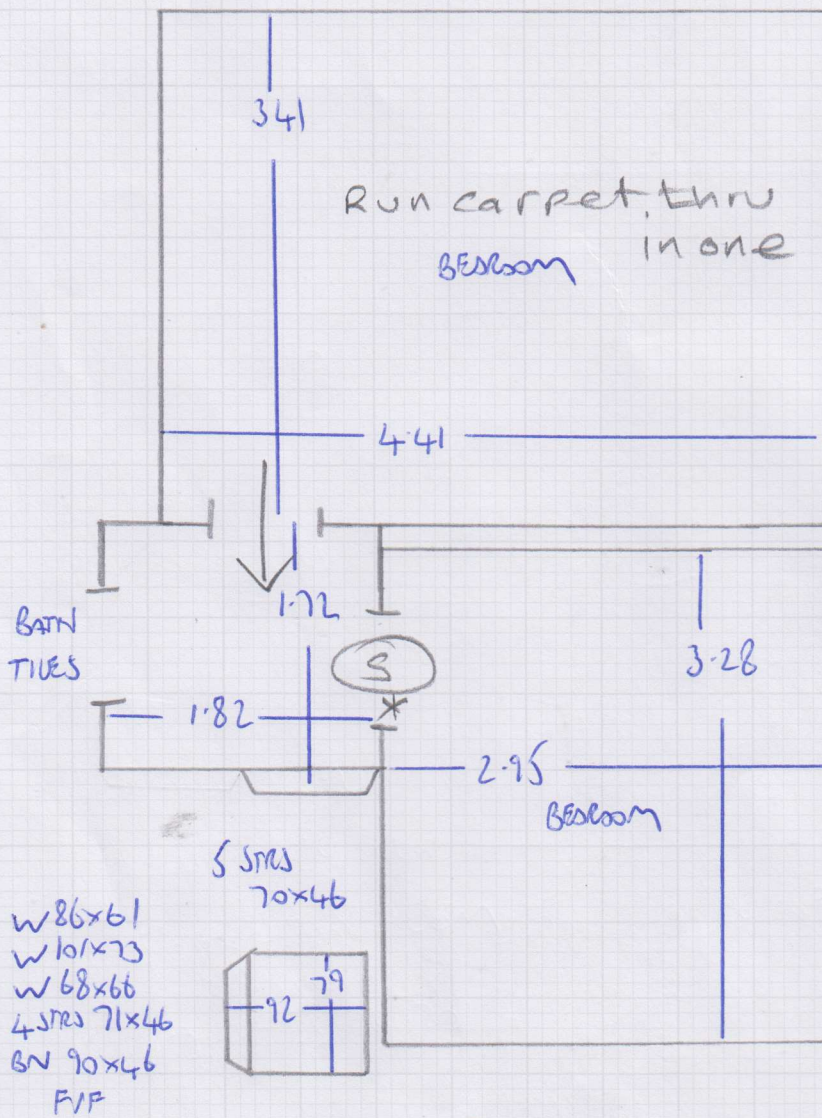 3.41
Run carpet thru
in one
BEDROOM
4.41
1.72
BATH
TILES
S
3.28
*
1.82
2.95
BEDROOM
5 STRS
70x46
W 86x61
W 101x73
W 68x66
4 STRS 71x46
BN 90x46
F/F
79
92